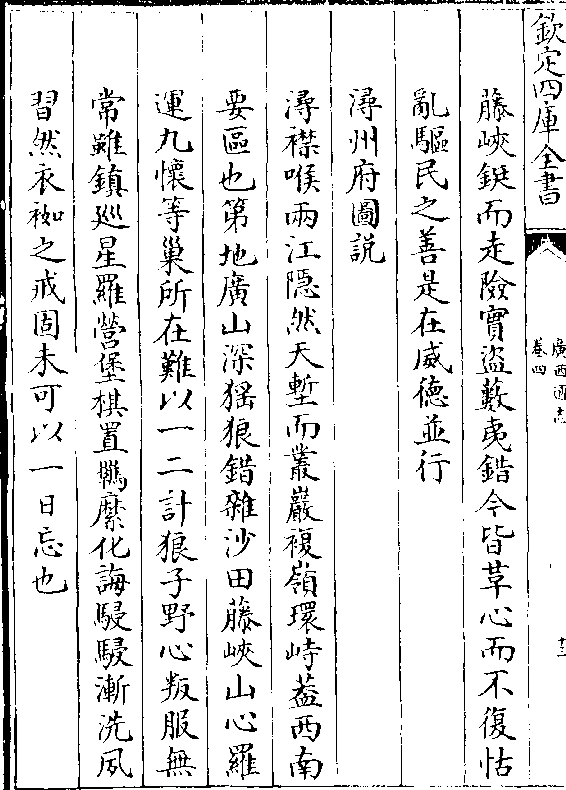 欽定四庫全書
廣西通志
卷四
十三
藤峽鋌而走險實盜藪夷錯今皆革心而不復怙
亂驅民之善是在威德並行
潯州府圖説
潯襟喉兩江隠然天塹而叢巖複嶺環峙葢西南
要區也第地廣山深猺狼錯雜沙田藤峽山心羅
運九懷等巢所在難以一二計狼子野心叛服無
常雖鎮廵星羅營堡棋置羈縻化誨駸駸漸洗夙
習然衣袽之戒固未可以一日忘也